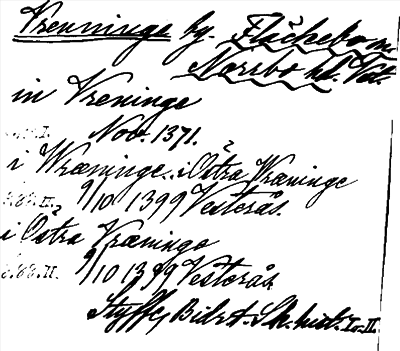 Vrenninge by. Fläckebo sn.
Norrbo hd. Vst.
in Vreninge
Nov. 1371.
i Wræninge, i Östra Vræninge
9/10 1399 Vesterås.
i Östra Vræninge
9/10 1399 Vesterås.
Styffe, Bidr. t. Sk. hist. I. II.